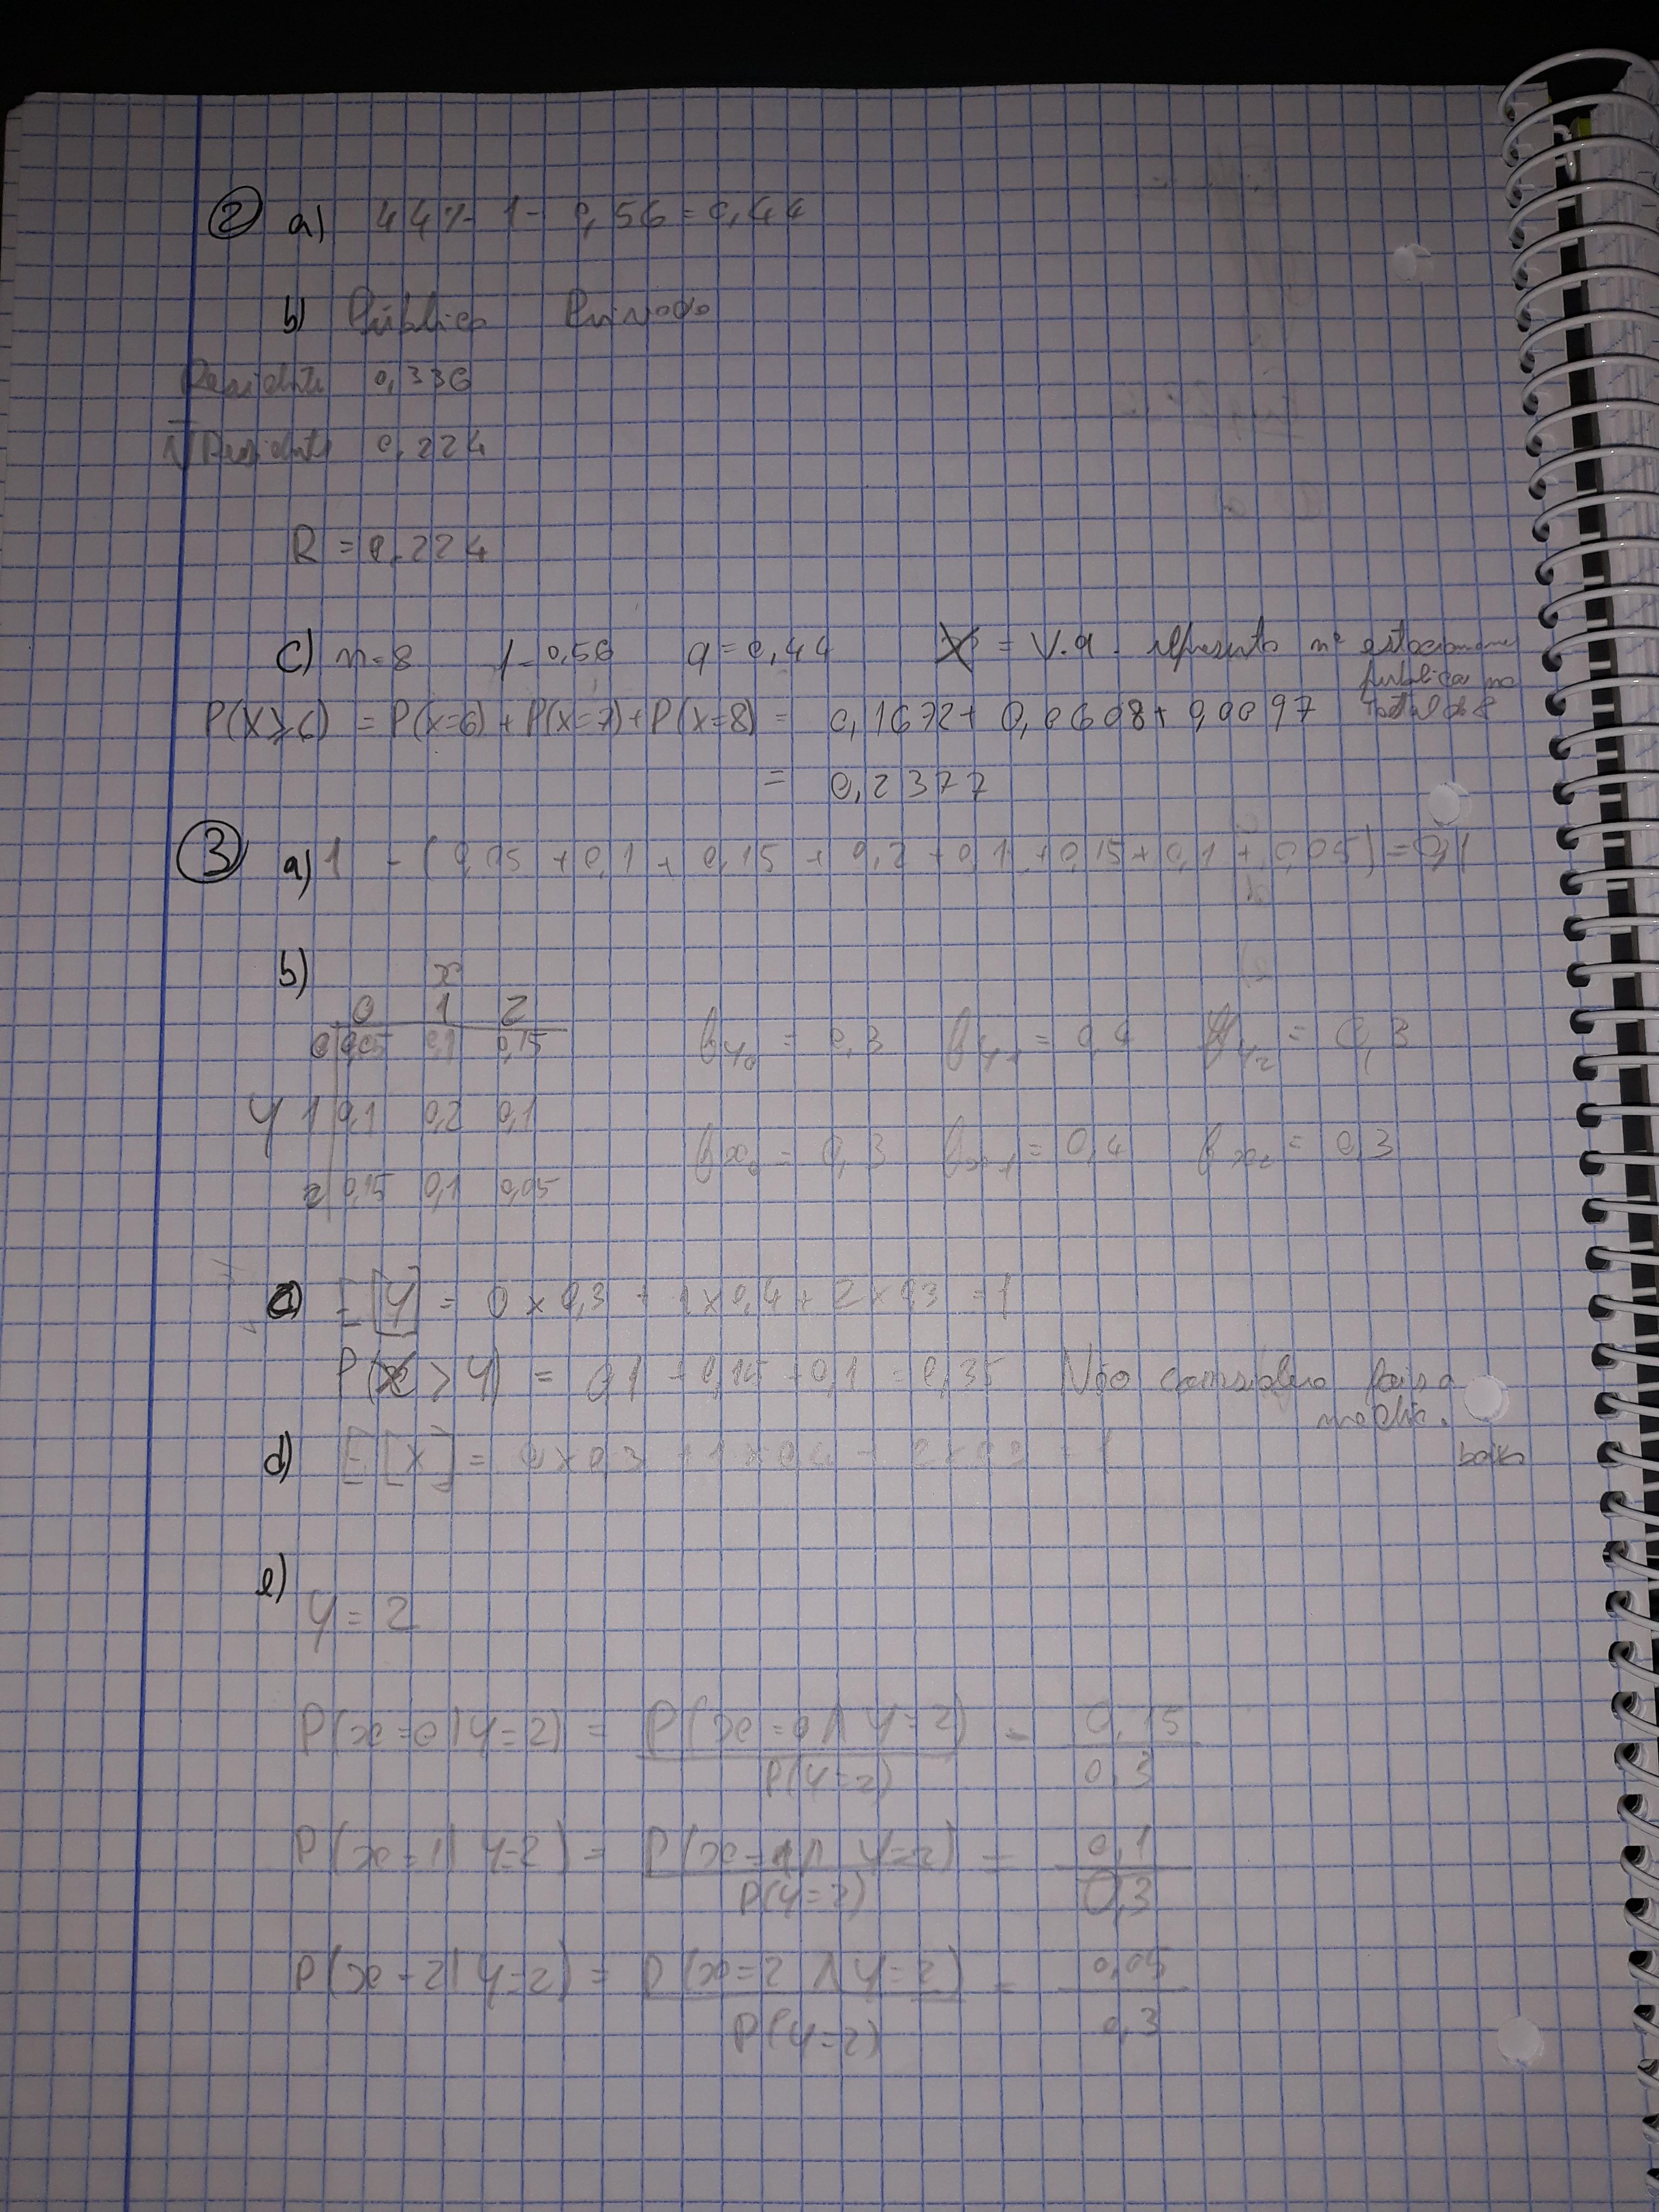 ② a) 44% 1 - 0,56 = 0,44
b) Público Privado
Residente 0,336
Ñ Residente 0,224
R = 0,224
c) n=8 p=0,56 q=0,44 X = V.a. representa nº estacionamentos
públicos no
total de 8
P(X⩾6) = P(x=6) + P(x=7) + P(x=8) = 0,1672 + 0,0608 + 0,0097
= 0,2377
③ a) 1 - (0,05 + 0,1 + 0,15 + 0,2 + 0,1 + 0,15 + 0,1 + 0,05) = 0,1
b) x
0 1 2
0 0,05 0,1 0,15 fy₀ = 0,3 fy₁ = 0,4 fy₂ = 0,3
y 1 0,1 0,2 0,1
fx₀ = 0,3 fx₁ = 0,4 fx₂ = 0,3
2 0,15 0,1 0,05
c) E[Y] = 0 x 0,3 + 1 x 0,4 + 2 x 0,3 = 1
P(x > Y) = 0,1 + 0,15 + 0,1 = 0,35 Não considero pois a
baixa
d) E[X] = 0 x 0,3 + 1 x 0,4 + 2 x 0,3 = 1
e)
Y = 2
P(x=0 | Y=2) = P(x=0 ∧ Y=2) / P(Y=2) = 0,15 / 0,3
P(x=1 | Y=2) = P(x=1 ∧ Y=2) / P(Y=2) = 0,1 / 0,3
P(x=2 | Y=2) = P(x=2 ∧ Y=2) / P(Y=2) = 0,05 / 0,3